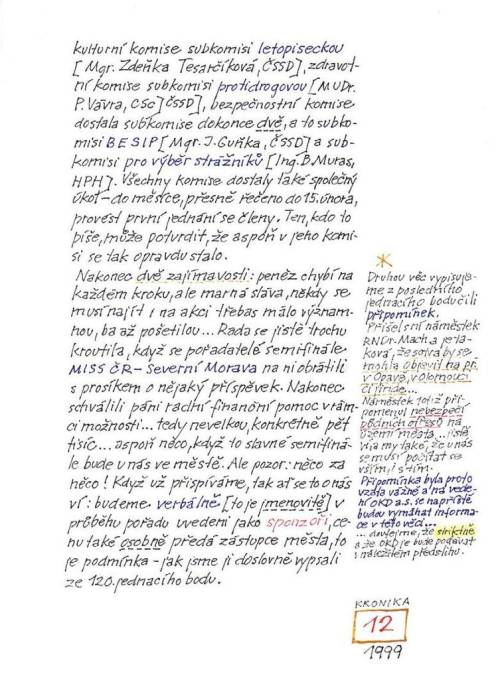 kulturní komise subkomisi letopiseckou
[Mgr. Zdeňka Tesarčíková, ČSSD], zdravot-
ní komise subkomisi protidrogovou [MUDr.
P. Vávra, CSc] ČSSD], bezpečnostní komise
dostala subkomise dokonce dvě, a to subko-
misi BESIP [Mgr. J. Guňka, ČSSD] a sub-
komisi pro výběr strážníků [Ing. B. Muras,
HPH]. Všechny komise dostaly také společný
úkol - do měsíce, přesně řečeno do 15. února,
provést první jednání se členy. Ten, kdo to
píše, může potvrdit, že aspoň v jeho komi-
si se tak opravdu stalo.
Nakonec dvě zajímavosti: peněz chybí na
každém kroku, ale marná sláva, někdy se
musí najít i na akci třebas málo význam-
nou, ba až pošetilou... Rada se jistě trochu
kroutila, když se pořadatelé semifinále
MISS ČR - Severní Morava na ni obrátili
s prosíkem o nějaký příspěvek. Nakonec
schválili páni radní finanční pomoc v rám-
ci možností... tedy nevelkou, konkrétně pět
tisíc... aspoň něco, když to slavné semifiná-
le bude u nás ve městě. Ale pozor: něco za
něco! Když už přispíváme, tak ať se to o nás
ví: budeme verbálně [to je jmenovitě] v
průběhu pořadu uvedeni jako sponzoři, ce-
nu také osobně předá zástupce města, to
je podmínka - jak jsme ji doslovně vypsali
ze 120. jednacího bodu.
Druhou věc vypisuje-
me z posledního
jednacího bodu čili
připomínek.
Přišel s ní náměstek
RNDr. Mach a je ta-
ková, že sotva by se
mohla objevit na př.
v Opavě, v Olomouci
či jinde...
Náměstek totiž při-
pomenul nebezpečí
důlních otřesů na
území města...
Vida my také, že u nás
se musí počítat se
vším, i s tím.
Připomínka byla proto
vzata vážně a na vede-
ní OKD a.s. se napříště
budou vymáhat informa-
ce v této věci...
... doufejme, že striktně
a že OKD je bude podávat
v náležitém předstihu.
KRONIKA
12
1999